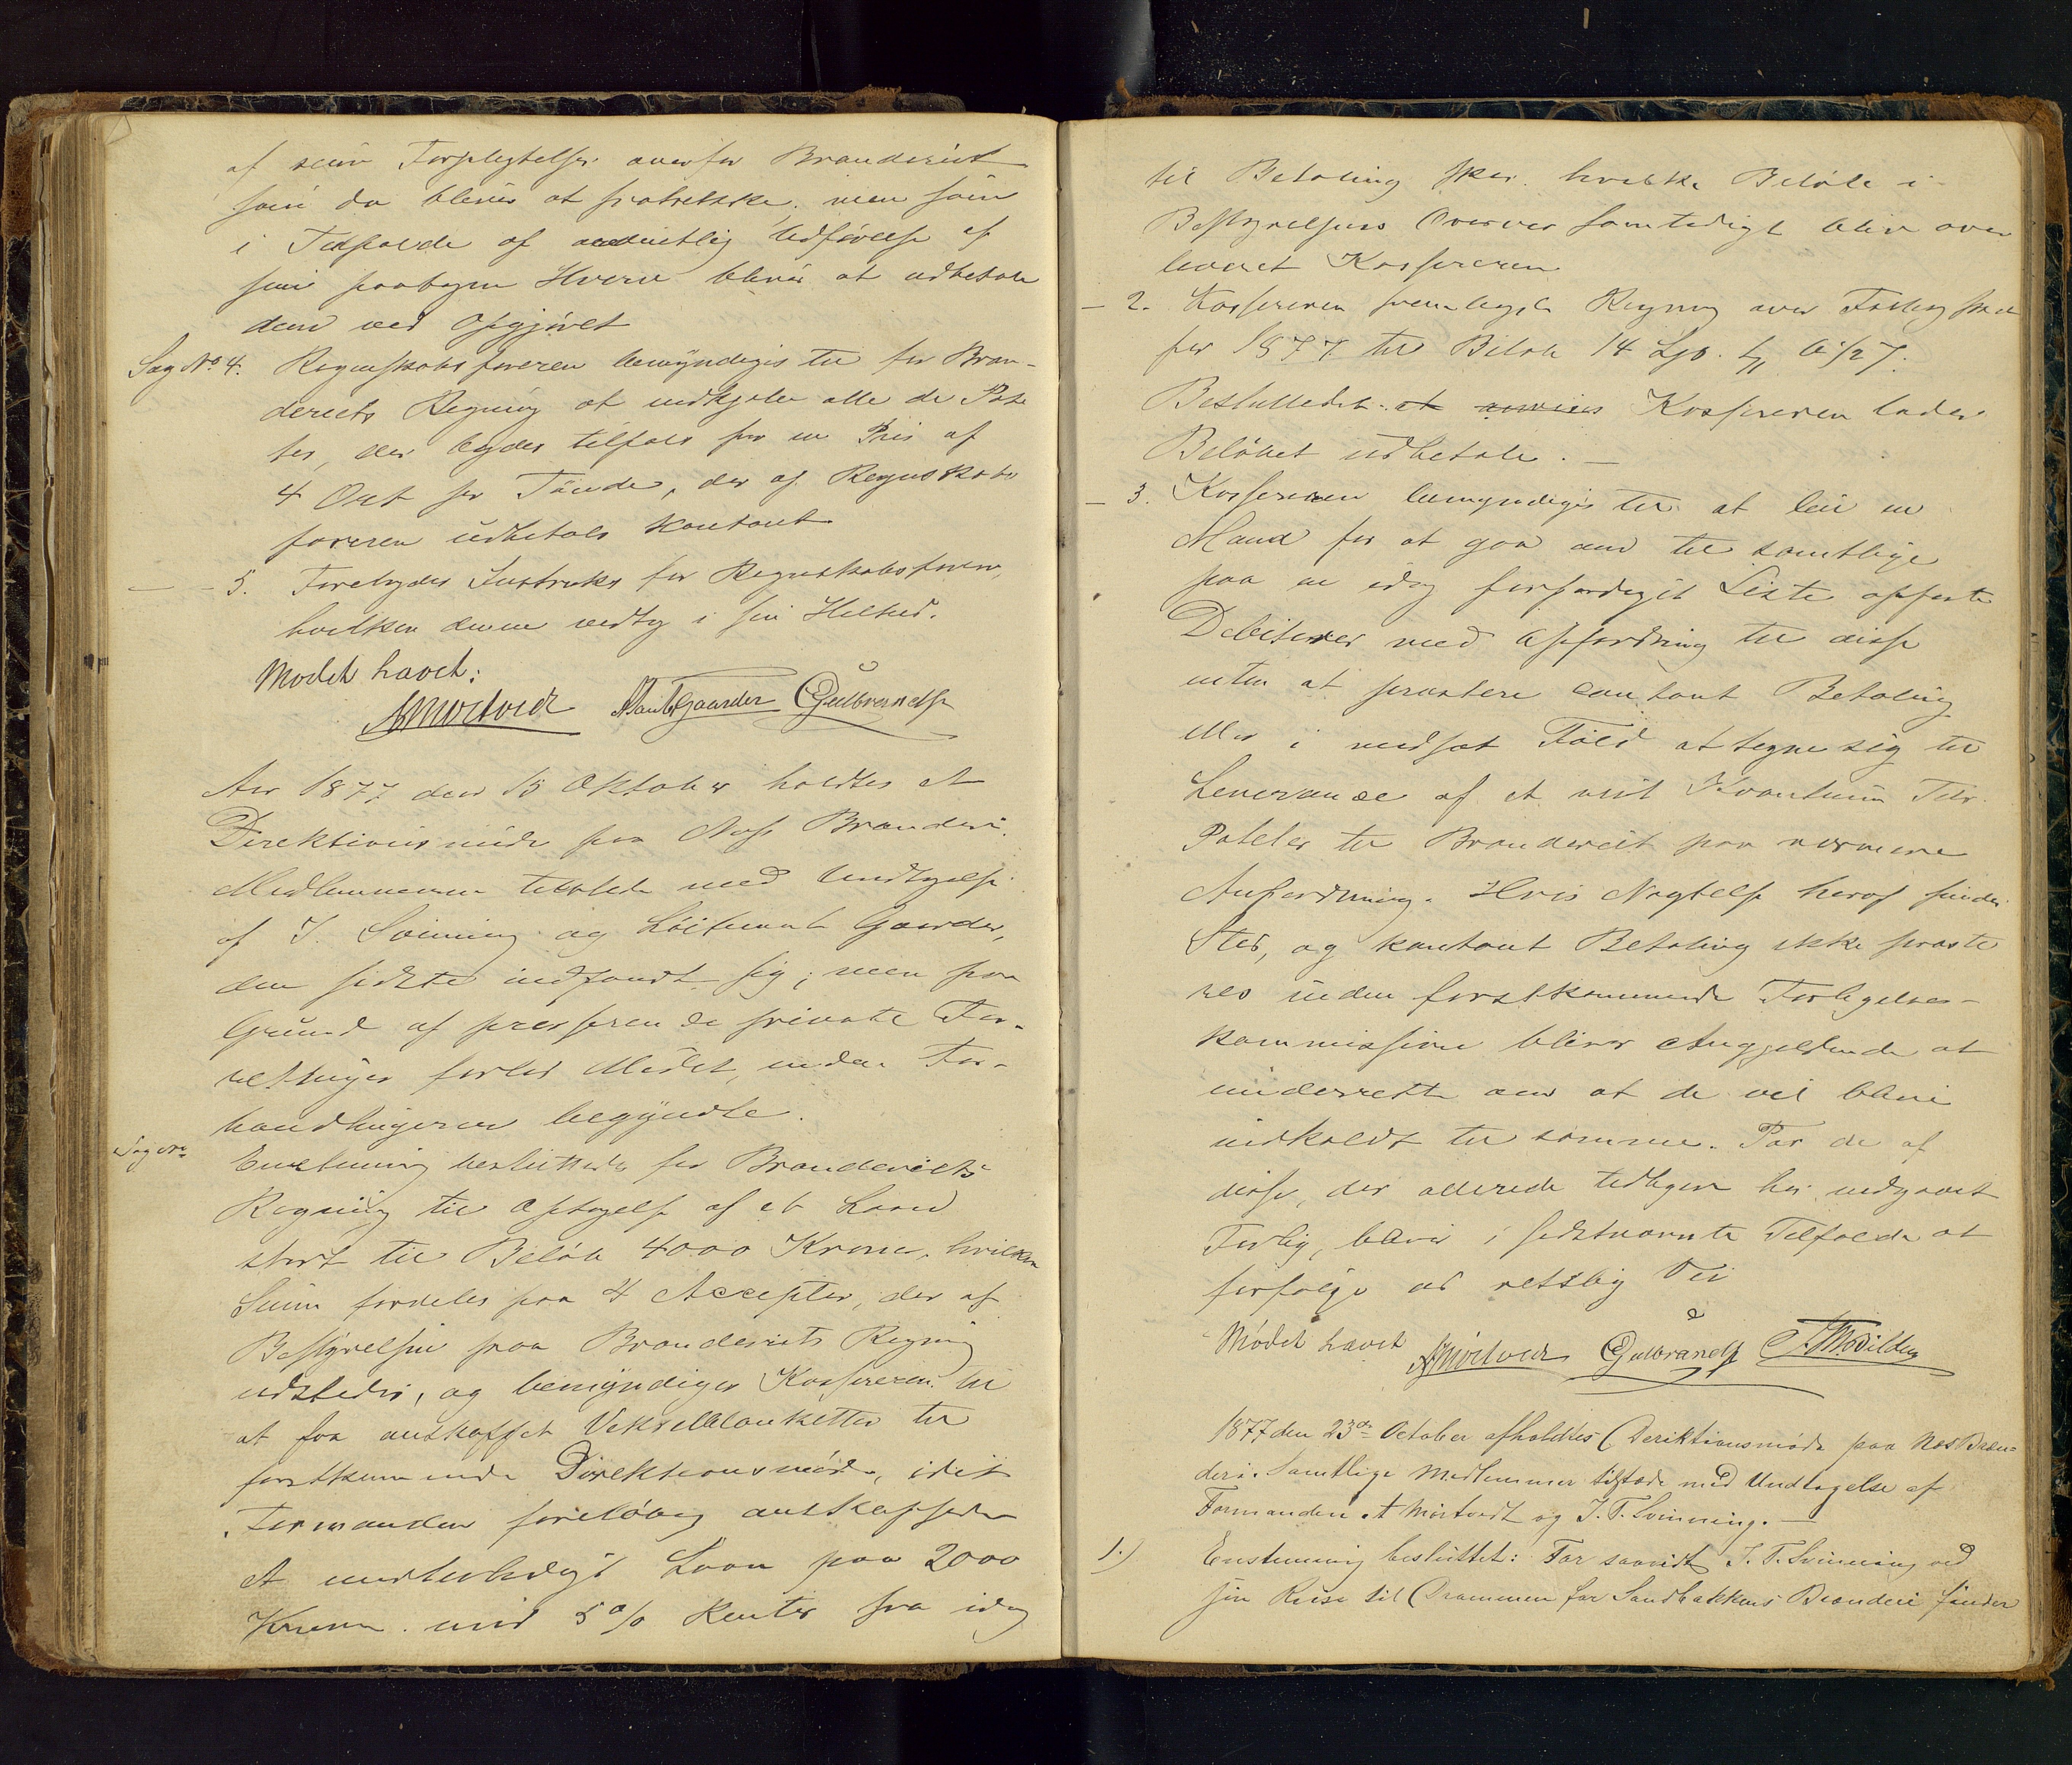 af sine Forpligtelser overfor Brænderiet
som da bliver at fratrække, men som
i Tilfælde af ordentlig Udførelse af
sine paatagne Hverv bliver at udbetale
dem ved Opgjøret
Sag No 4. Regnskabsføreren bemyndiges til for Bræn-
deriets Regning at indkjøbe alle de Pote
ter, der bydes tilfals for en Pris af
4 Ort pr Tønde, der af Regnskabs
føreren udbetales kontant
— - 5. Forelagdes Instruks for Regnskabsføreren,
hvilken denne vedtog i sin Helhed.
Mødet hævet:
A Mørtvedt Gaarder Gulbrandsen
Aar 1877 den 15 Oktober holdtes et
Direktionsmøde paa Næs Brænderi.
Medlemmerne tilstede med Undtagelse
af J. Svinning og Løitnant Gaarder,
den sidste indfandt sig; men paa
Grund af presserende private For-
retninger forlod Mødet, inden For-
handlingerne begyndte.
Enstemmig besluttedes for Brænderiets
Regning til Optagelse af et Laan
stort til Beløb 4000 Kroner, hvilken
Sum fordeles paa 4 Accepter, der af
Bestyrelsen paa Brænderiets Regning
udstedes, og bemyndiges Kassereren til
at faa anskaffet Vekselblanketter til
førstkommende Direktionsmøde, idet
Formanden foreløbig anskaffede
et midlertidigt Laan paa 2000
Kroner mod 5 % Renter fra idag
til Betaling sker. hvilke Beløb i
Bestyrelsens Overvær samtidigt blev over
leveret Kassereren
— 2. Kassereren fremlagde Regning over
for 1877 til Beløb 14
Besluttedes: at Kassereren lader
Beløbet udbetale. —
— 3. Kassereren bemyndiges til at leie en
Mand for at gaa om til samtlige
paa en idag forfærdiget Liste opførte
Debitorer med Opfordring til disse
enten at præstere contant Betaling
eller i modsat Fald at tegne sig til
Leverance af et vist Kvantum Tdr.
Poteter til Brænderiet paa nærmere
Anfordring. Hvis Nægtelse heraf finder
Sted, og kontant Betaling ikke præste
res inden førstkommende Forligelses-
kommission bliver Angjældende at
underrette om at de vil blive
indkaldt til samme. For de af
disse, der allerede tidligere har indgaaet
Forlig, bliver i sidstnævnte Tilfælde at
forfølge ad retslig Vei
Mødet hævet A Mørtvedt Gulbrandsen
1877 den 23de October afholdtes Deriktionsmøde paa Næs Bræn=
deri. Samtlige Medlemmer tilstede med Undtagelse af
Formanden A Mørtvedt og J. T. Svinning. —
1.) Enstemmig besluttet: For saavidt J. T. Svinning ved
sin Reise til Drammen for Sandbakkens Brænderi finder